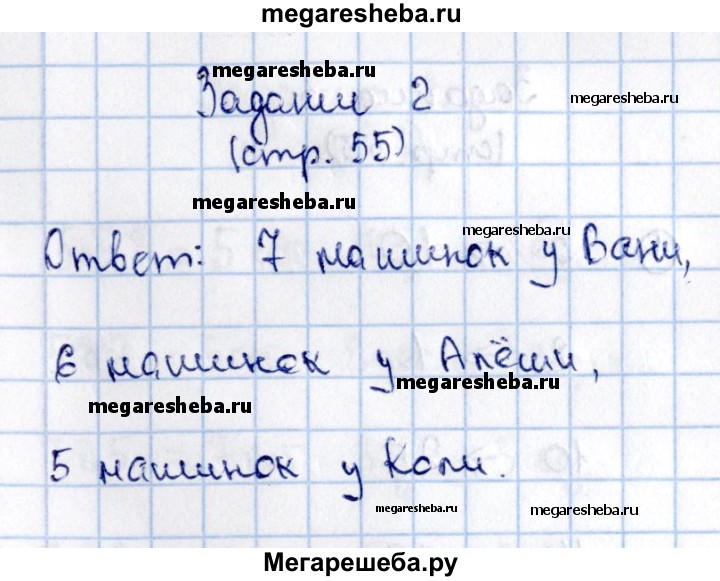 megaresheba.ru
megaresheba.ru
Задание 2
megaresheba.ru
(стр. 55)
megaresheba.ru
megaresheba.ru
Ответ: 7 машинок у Вани,
6 машинок у Алёши,
megaresheba.ru
megaresheba.ru
5 машинок у Коли.
megaresheba.ru
megaresheba.ru
Мегарешеба.ру